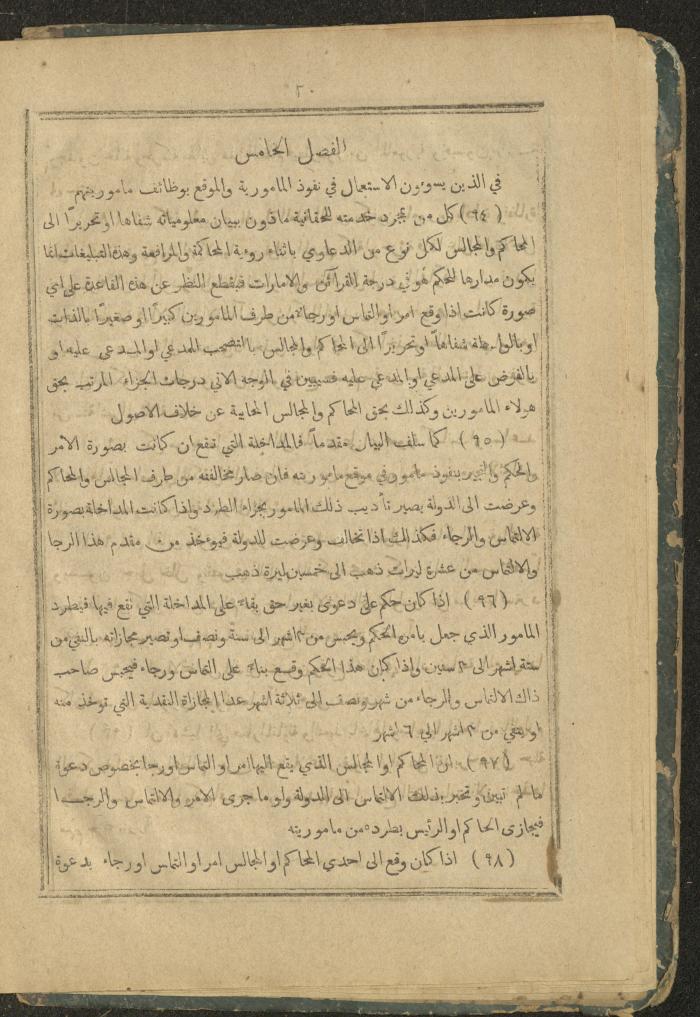 ٢٠
الفصل الخامس
في الذين يسوءون الاستعمال في نفوذ المامورية والموقع بوظائف ماموريتهم
(٩٤) كل من بمجرد خدمته للحقانية ماذون ببيان معلومياته شفاها او تحريرًا الى
المحاكم والمجالس لكل نوع من الدعاوي باثناء روءية المحاكمة والمرافعة وهذه التبليغات انما
يكون مدارها للحكم هو في درجة القرائن والامارات فبقطع النظر عن هذه القاعدة على اي
صورة كانت اذا وقع امر او التماس او رجاء من طرف المامورين كبيرًا او صغيرًا بالذات
او بالواسطة شفاهاً او تحريرًا الى المحاكم والمجالس بالتصحب المدعي او المدعى عليه او
بالغرض على المدعي او المدعى عليه فسيبين في الوجه الاتي درجات الجزاء المرتب بحق
هولاء المامورين وكذلك بحق المحاكم والمجالس المحابية عن خلاف الاصول
(٩٥) كما سلف البيان مقدماً فالمداخلة التي تقع ان كانت بصورة الامر
والحكم والجبر بنفوذ مامور في موقع ماموريته فان صار مخالفته من طرف المجالس والمحاكم
وعرضت الى الدولة يصير تأديب ذلك المامور بجزاء الطرد واذا كانت المداخلة بصورة
الالتماس والرجاء فكذلك اذا تخالف وعرضت للدولة فيوءخذ من مقدم هذا الرجا
والالتماس من عشرة ليرات ذهب الى خمسين ليرة ذهب
(٩٦) اذا كان حكم على دعوى بغير حق بقاءً على المداخلة التي تقع فيها فيطرد
المامور الذي جعل بامره الحكم ويحبس من ٣ اشهر الى سنة ونصف او تصير مجازاته بالنفي من
ستة اشهر الى ٣ سنين واذا كان هذا الحكم وقع بناءً على التماس ورجاء فيحبس صاحب
ذاك الالتماس والرجاء من شهر ونصف الى ثلاثة اشهر عدا المجازاة النقدية التي توخذ منه
او ينفي من ٣ اشهر الى ٦ اشهر
(٩٧) ان المحاكم او المجالس الذي يقع اليها امر او التماس او رجا بخصوص دعوة
ما لم تبين وتخبر بذلك الالتماس الى الدولة ولو ما جرى الامر والالتماس والرجا
فيجازى الحاكم او الرئيس بطرده من ماموريته
(٩٨) اذا كان وقع الى احدى المحاكم او المجالس امر او التماس او رجاء بدعوة